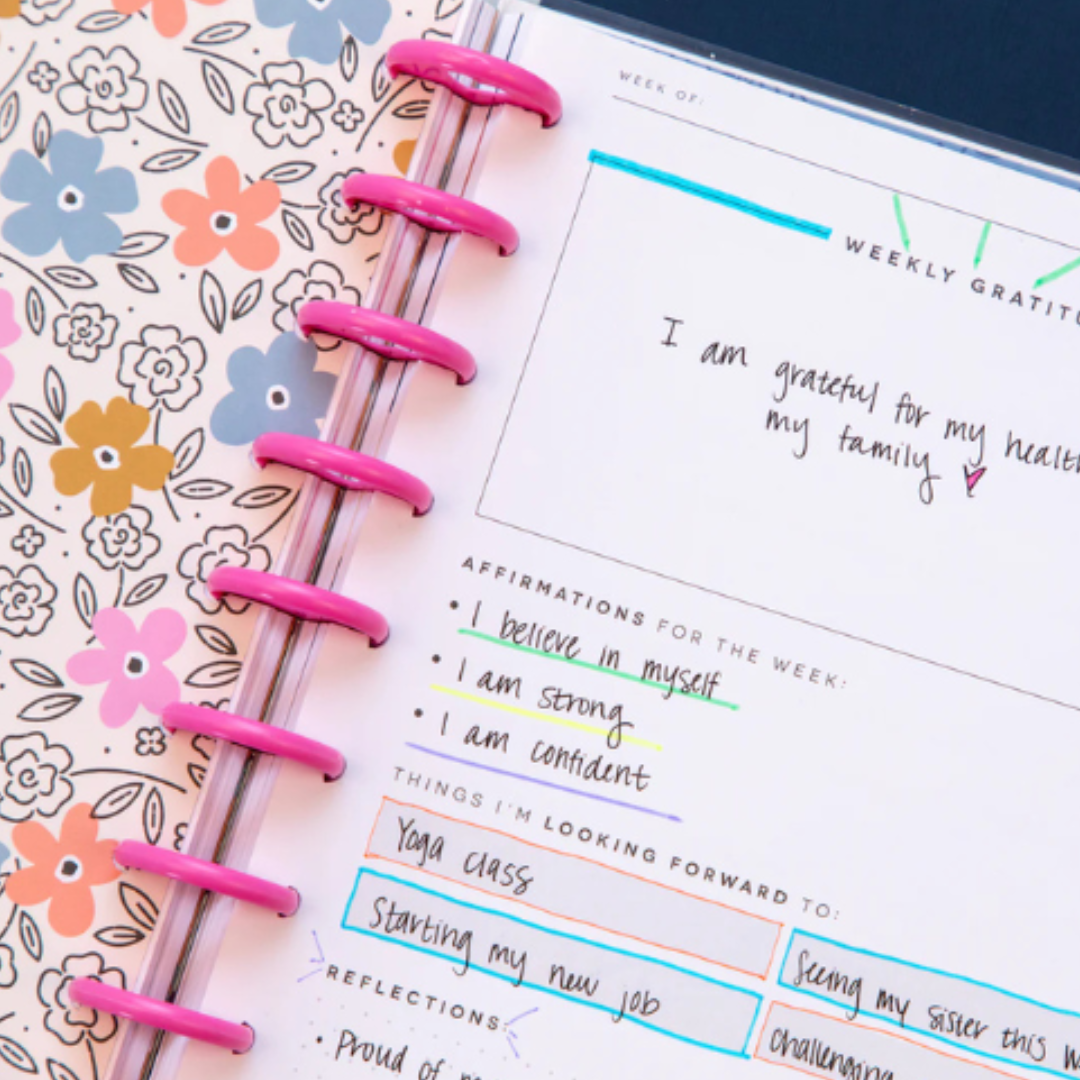 WEEK OF:
WEEKLY
I am grateful for my
my family
AFFIRMATIONS FOR THE WEEK:
• I believe in myself
• I am strong
• I am confident
THINGS I'M LOOKING FORWARD TO:
Yoga class
Starting my new job
Seeing my sister this
challenging
REFLECTIONS:
• Proud of